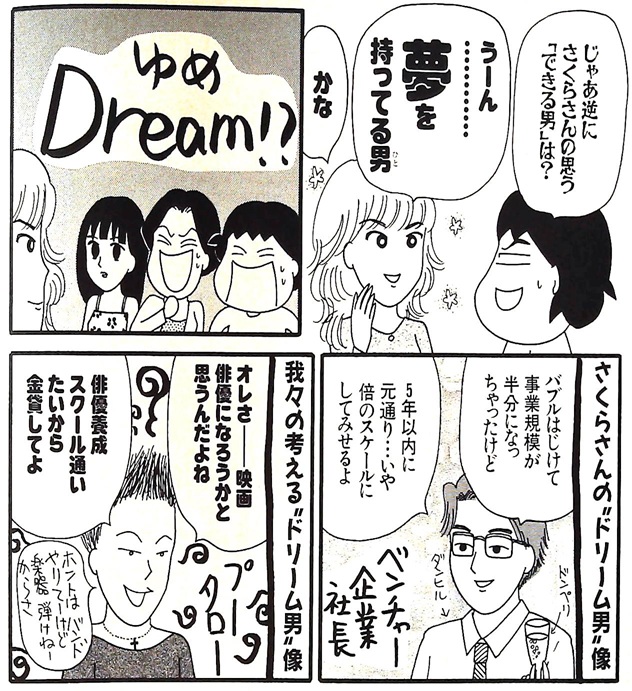 じゃあ逆に
さくらさんの思う
「できる男」は?
うーん
…………
夢を
持ってる男
ひと
かな
ゆめ
Dream!?
さくらさんの〝ドリーム男〟像
バブルはじけて
事業規模が
半分になっ
ちゃったけど
5年以内に
元通り…いや
倍のスケールに
してみせるよ
ドンペリ
ダンヒル
ベンチャー
企業
社長
我々の考える〝ドリーム男〟像
オレさ――映画
俳優になろうかと
思うんだよね
俳優養成
スクール通い
たいから
金貸してよ
プー
タロー
ホントは バンド
やりてーけど
楽器 弾けねー
からさ